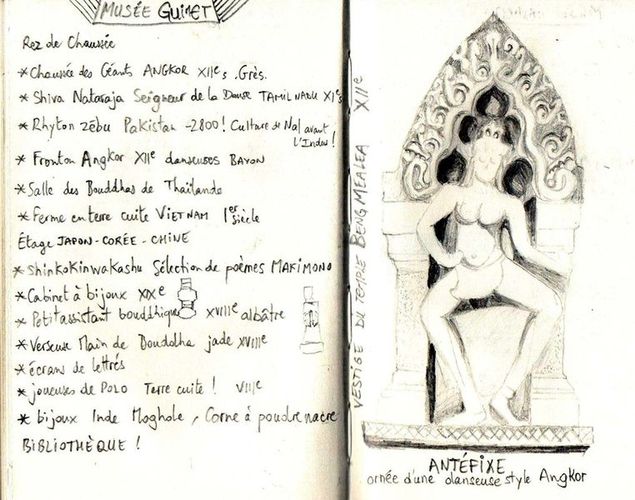 MUSÉE GUIMET
Rez de Chaussée
* Chaussée des Géants ANGKOR XIIe s. Grès.
* Shiva Nataraja Seigneur de la Danse TAMIL NADU XIe s
* Rhyton zébu Pakistan -2800! Culture de Nal avant
l'Indus!
* Fronton Angkor XIIe danseuses BAYON
* Salle des Bouddhas de Thaïlande
* Ferme en terre cuite VIETNAM 1er siècle
Étage JAPON - CORÉE - CHINE
* ShinKoKinwaKashu Sélection de poèmes MAKIMONO
* Cabinet à bijoux XIXe
* Petit assistant bouddhique XVIIIe albâtre
* Verseuse Main de Bouddha jade XVIIIe
* écrans de lettrés
* joueuses de POLO Terre cuite! VIIIe
* bijoux Inde Moghole, Corne à poudre nacre
BIBLIOTHÈQUE!
VESTIGE DU TEMPLE BENG MEALEA XIIe
ANTÉFIXE
ornée d'une danseuse style Angkor